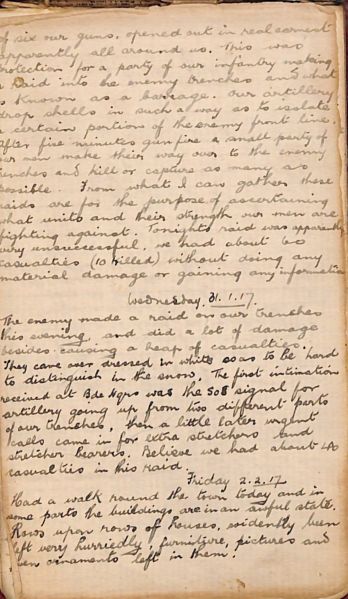 of six our guns, opened out in real earnest
apparently all around us. This was
protection for a party of our infantry making
a raid into the enemy trenches and what
is known as a barage. Our artillery
drop shells in such a way as to isolate
a certain portion of the enemy front line.
After five minutes gun fire a small party of
our men make their way over to the enemy
trenches and kill or capture as many as
possible. From what I can gather these
raids are for the purpose of ascertaining
what units and their strength our men are
fighting against. Tonights raid was apparently
very unsuccessful, we had about 60
casualties (10 killed) without doing any
material damage or gaining any information
Wednesday, 31.1.17.
The enemy made a raid on our trenches
this evening and did a lot of damage
besides causing a heap of casualties.
They came over dressed in white so as to be hard
to distinguish in the snow. The first intimation
received at Bde Hqrs was the SOS signal for
artillery going up from two different parts
of our trenches, then a little later urgent
calls came in for extra stretchers and
stretcher bearers. Believe we had about
casualties in this raid.
Friday 2.2.17
Had a walk round the town today and in
some parts the buildings are in an awful state.
Rows upon rows of houses, evidently been
left very hurriedly, furniture, pictures and
even ornaments left in them.